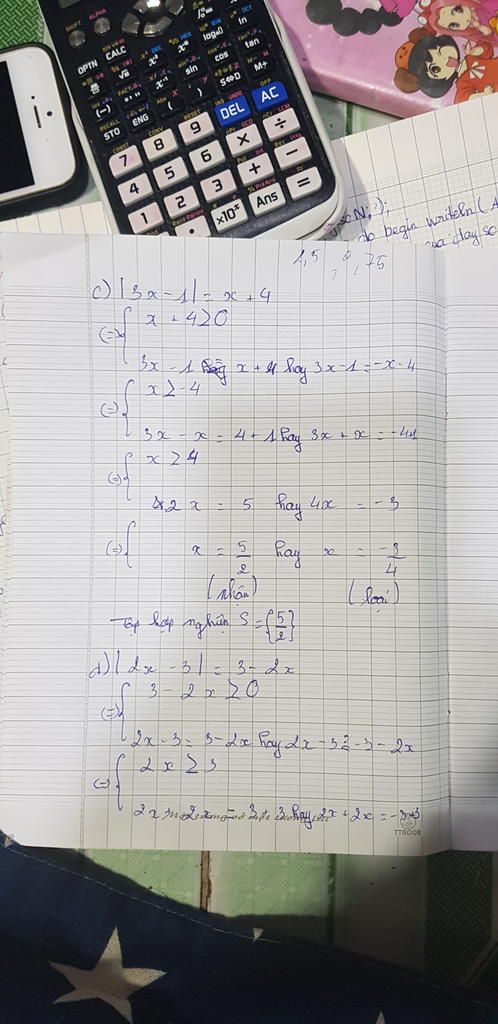 SHIFT ALPHA
OPTN CALC
sin cos tan
STO ENG ( ) S⇔D M+
7 8 9 DEL AC
4 5 6 × ÷
1 2 3 + −
. ×10ˣ Ans =
do begin writeln (
2,5 , 0,75
c) |3x - 1| = x + 4
(=) { x + 4 ≥ 0
3x - 1 = x + 4 hay 3x - 1 = -x - 4
(=) { x ≥ -4
3x - x = 4 + 1 hay 3x + x = -4+1
(=) { x ≥ 4
2x = 5 hay 4x = -3
(=) { x = 5/2 hay x = -3/4
(nhận) (loại)
Tập hợp nghiệm S = {5/2}
d) |2x - 3| = 3 - 2x
(=) { 3 - 2x ≥ 0
2x - 3 = 3 - 2x hay 2x - 3 = -3 - 2x
(=) { 2x ≥ 3
2x 2x = 3 + 3 hay 2x + 2x = -3+3
TTBOOK